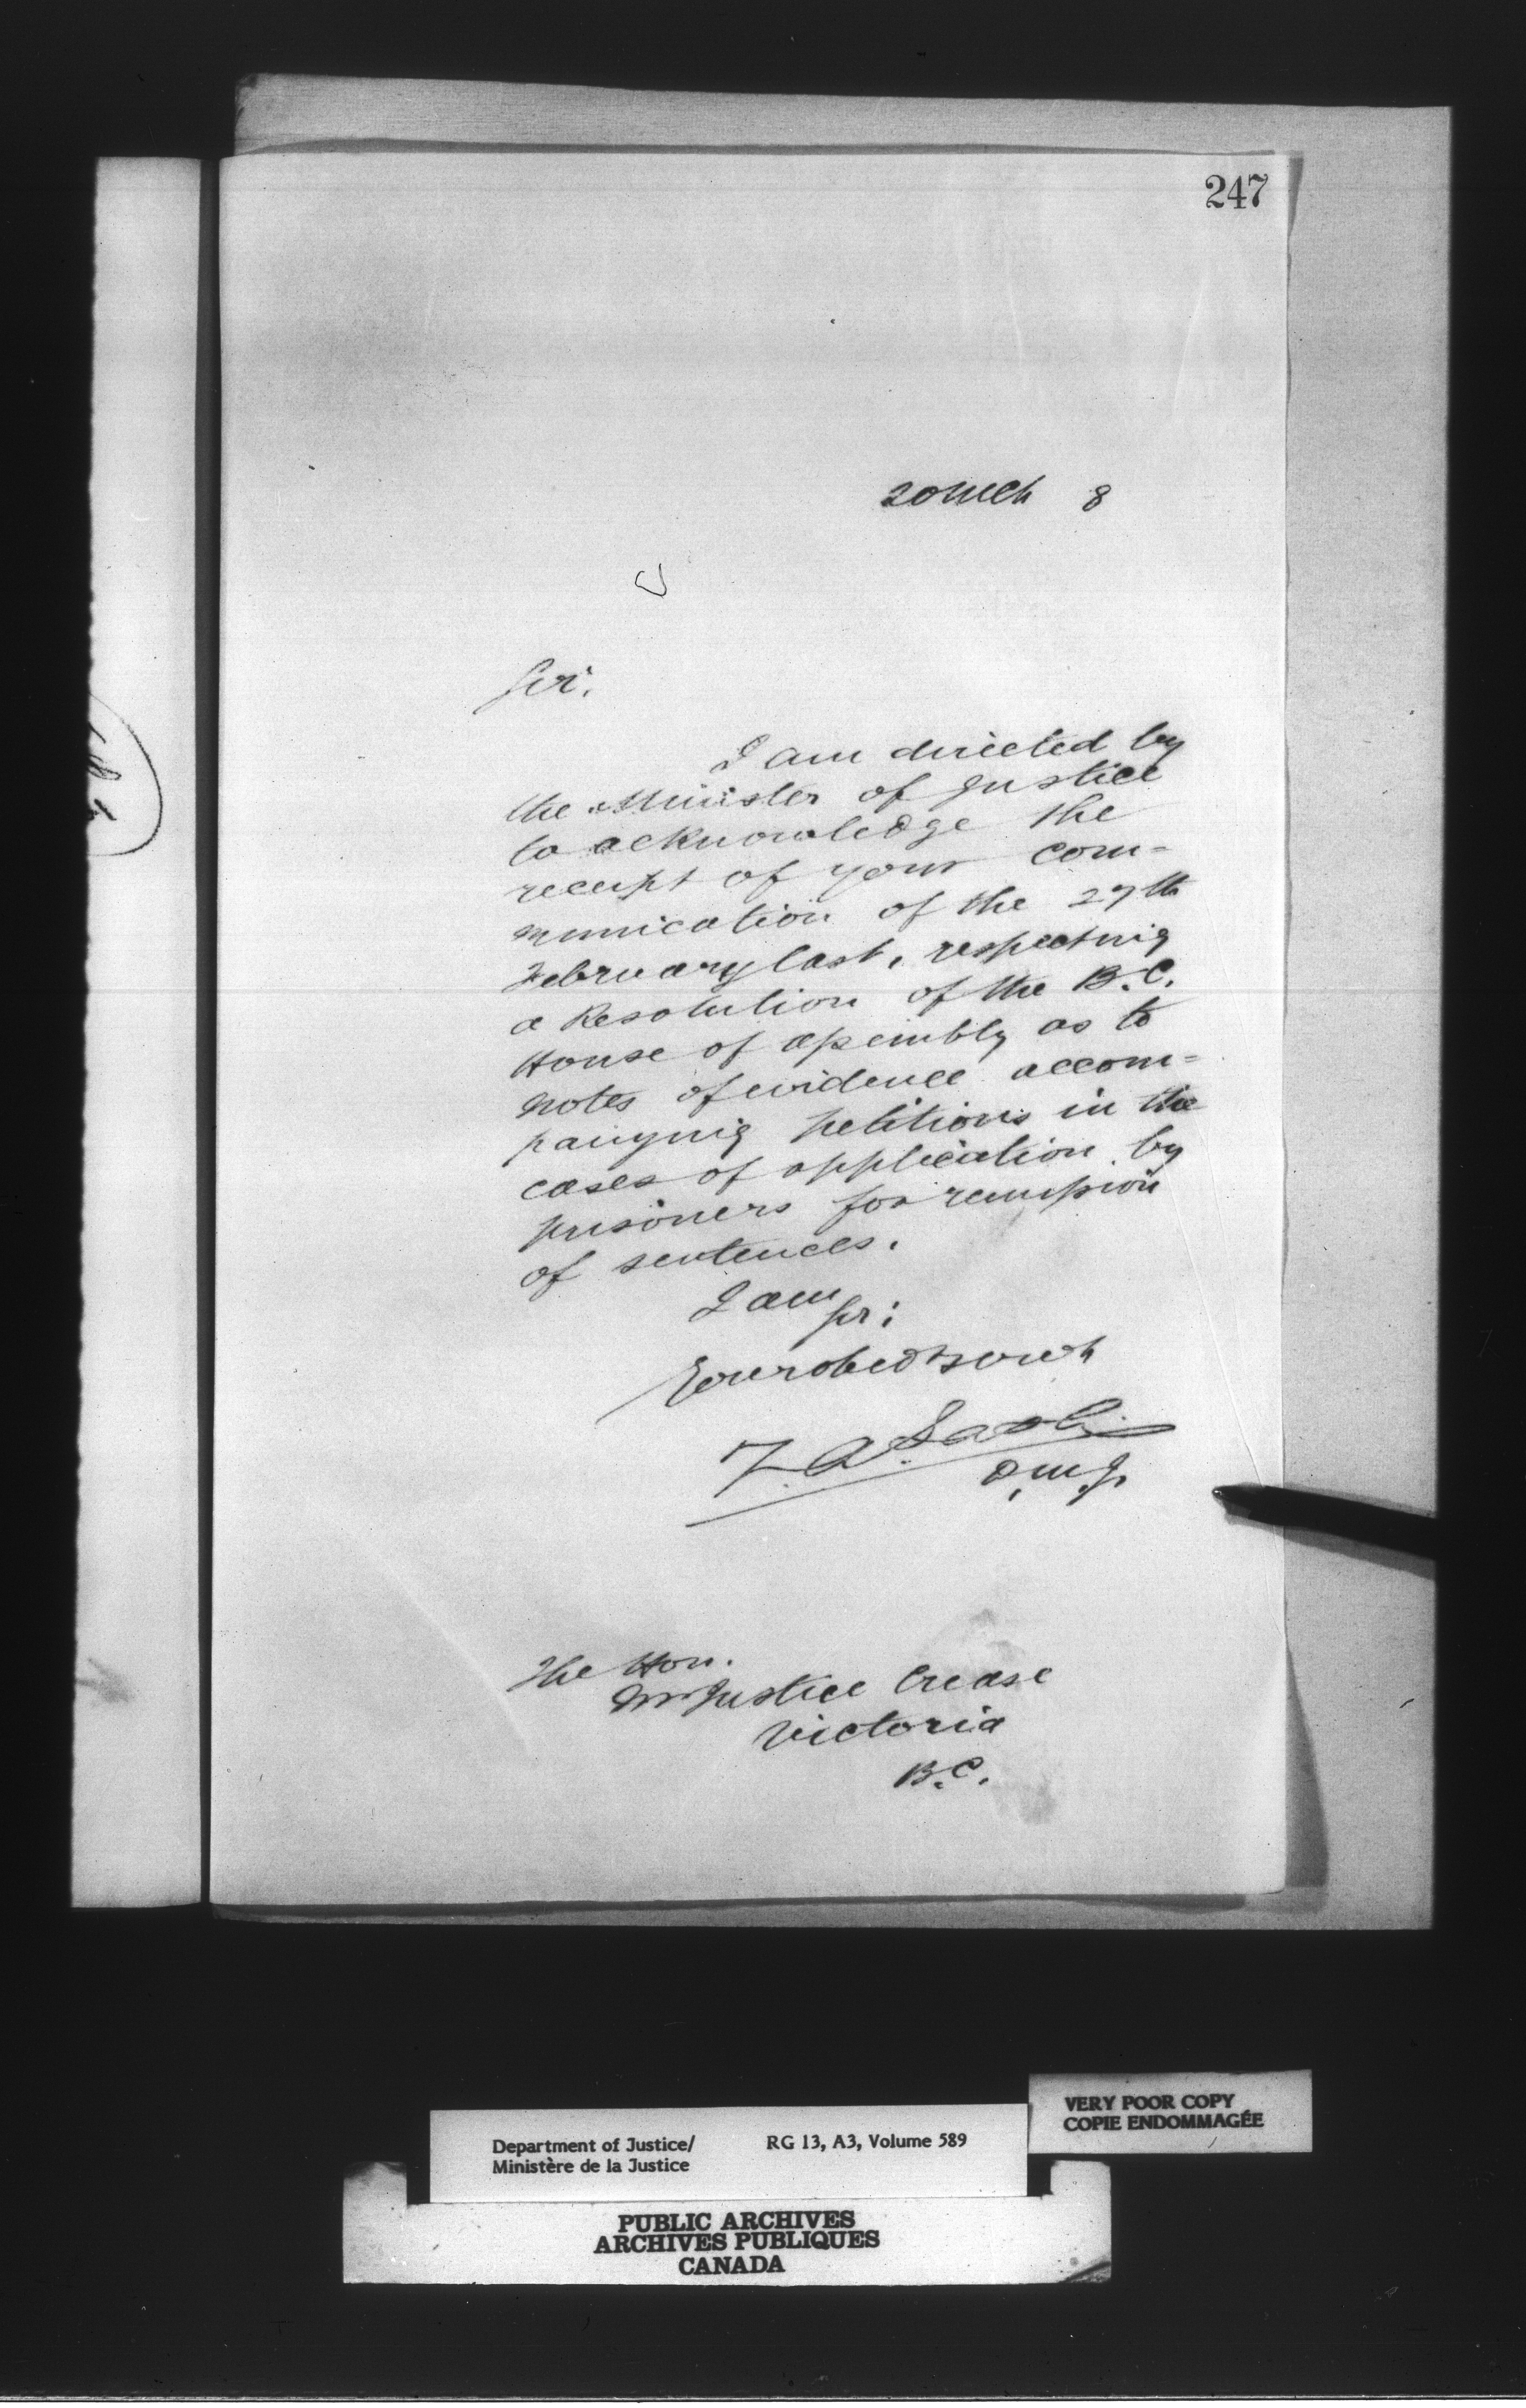 247
20 Mch 8
Sir,
I am directed by
the Minister of Justice
to acknowledge the
receipt of your com=
munication of the 27th
February last, respecting
a Resolution of the B.C.
House of Assembly as to
notes of evidence accom=
panying petitions in the
cases of application by
prisoners for remission
of sentences.
I am
Sir:
Your obed servt
D.M.J.
The Hon.
Mr Justice Crease
Victoria
B.C.
VERY POOR COPY
COPIE ENDOMMAGÉE
Department of Justice/ RG 13, A3, Volume 589
Ministère de la Justice
PUBLIC ARCHIVES
ARCHIVES PUBLIQUES
CANADA